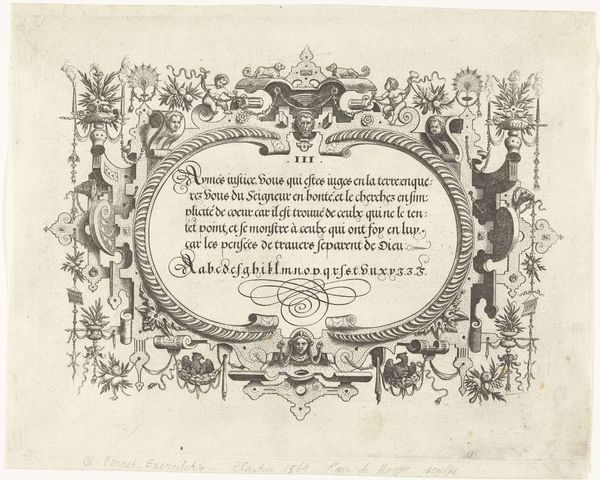 . III .
Aymés iustice Vous qui estes iuges en la terre: enque-
rez Vous du Seigneur en bonté, et le cherchez en sim
plicité de coeur car il est trouué de ceulx qui ne le ten-
tet point, et se monstre à ceulx qui ont foy en luy,
car les pensées de trauers separent de Dieu
A a b c d e f g h i k l m n o p q r s s t V u x y z z z
Cl. Perret Exercitatio ... Plantin 1569. sculps.